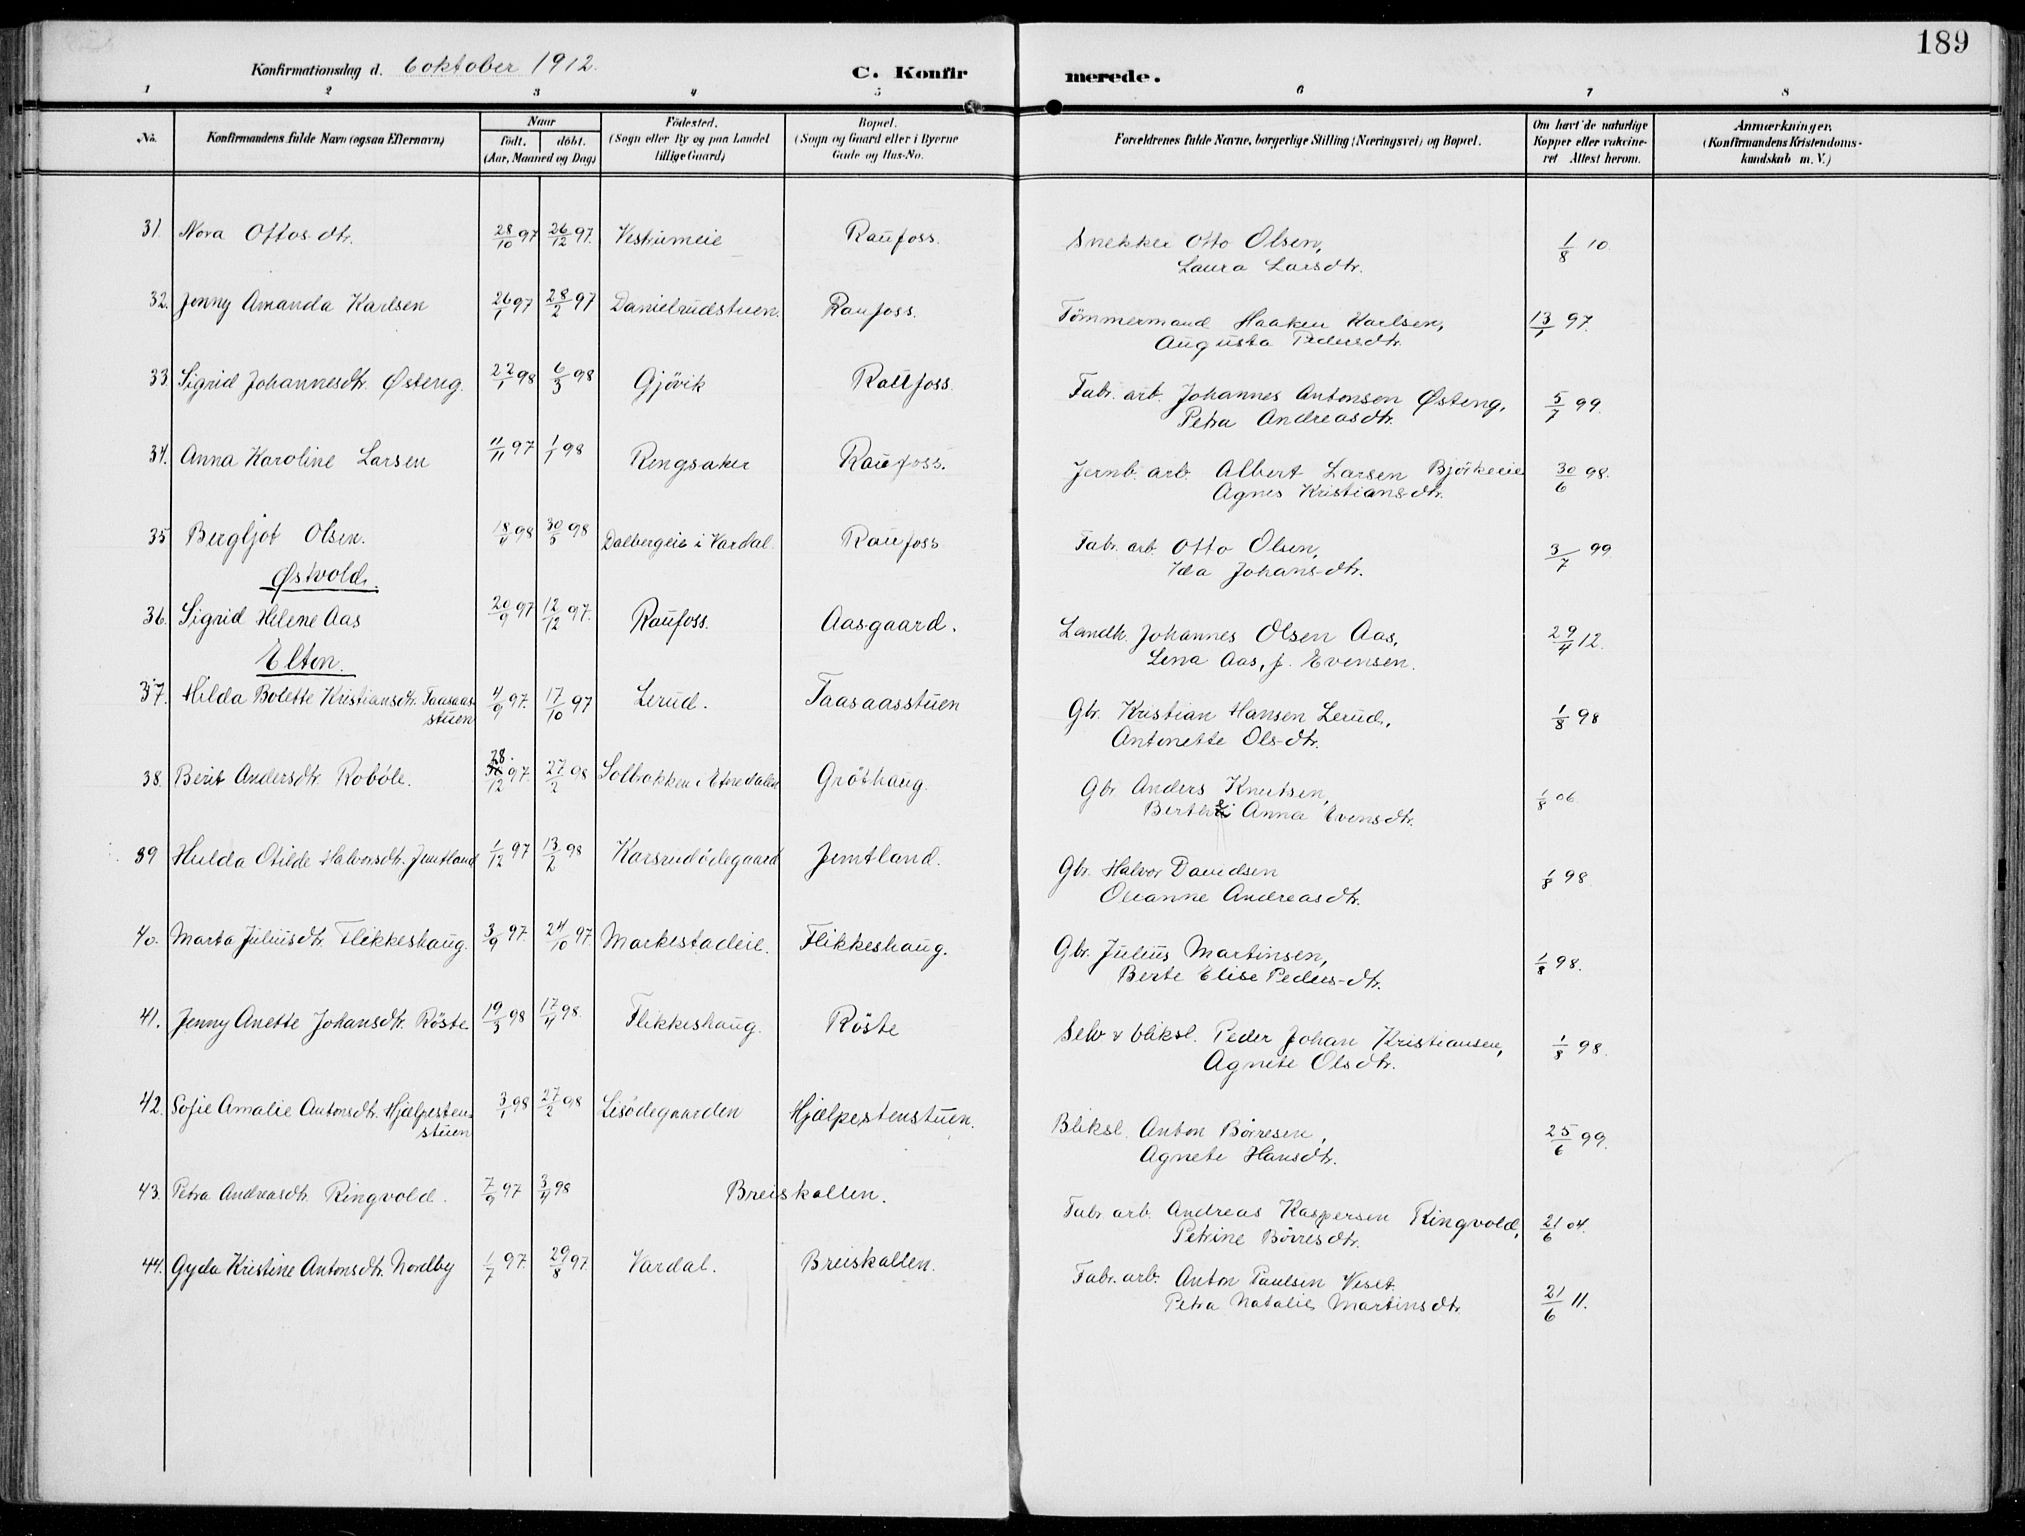 189
Konfirmationsdag d. 6 oktober 1912.
C. Konfirmerede.
1 2 3 4 5 6 7 8
No. | Konfirmandens fulde Navn (ogsaa Efternavn) | Naar født. døbt. (Aar, Maaned og Dag) | Fødested. (Sogn eller By og paa Landet tillige Gaard) | Bopæl. (Sogn og Gaard eller i Byerne Gade og Hus-No. | Forældrenes fulde Navne, borgerlige Stilling (Næringsvei) og Bopæl. | Om havt de naturlige Kopper eller vaccineret Attest herom. | Anmærkninger. (Konfirmandens Kristendomskundskab m. V.)
31. Nora Ottosdtr. 28/10 97 26/12 97. Vestrumeie Raufoss. Snekker Otto Olsen, 1/8 10
Laura Larsdtr.
32. Jenny Amanda Karlsen 26/1 97 28/2 97 Danielrudstuen. Raufoss. Tømmermand Haaken Karlsen, 13/1 97.
Augusta Pedersdtr.
33. Sigrid Johannesdtr. Østeng. 22/1 98 6/3 98 Gjøvik Raufoss. Fabr. arb. Johannes Antonsen Østeng, 5/7 99.
Petra Andreasdtr.
34. Anna Karoline Larsen 11/11 97 1/1 98 Ringsaker Raufoss. Jernb. arb. Albert Larsen Bjørkeeie 30/6 98.
Agnes Kristiansdtr.
35 Bergljot Olsen. 18/4 98 30/5 98 Dalbergeie i Vardal. Raufoss Fabr. arb. Otto Olsen, 3/7 99
Østvold. Ida Johans-dtr.
36. Sigrid Helene Aas 20/9 97 12/12 97. Raufoss. Aasgaard. Landh. Johannes Olsen Aas, 29/4 12.
Elton. Lena Aas, f. Evensen.
37. Hilda Bolette Kristiansdtr. Taasaas- 4/9 97. 17/10 97 Lerud. Taasaasstuen Gbr. Kristian Hansen Lerud, 1/8 98
stuen Antonette Ols-dtr.
38. Berit Andersdtr. Robøle. 28/12 97. 27/2 98 Solbakken i Etnedalen Grøthaug. Gbr. Anders Knutsen, 1/8 06.
Berthe Anna Evensdtr.
39 Hulda Otilde Halvorsdtr. Jemtland 1/12 97 13/2 98 Karsrudødegaard Jemtland. Gbr. Halvor Davidsen 1/8 98.
Oleanne Andreasdtr.
40. Marta Juliusdtr. Flikkeshaug. 3/9 97. 24/10 97. Markestadeie. Flikkeshaug. Gbr. Julius Martinsen, 1/8 98.
Berte Elise Peders-dtr.
41. Jenny Anette Johansdtr. Røste 19/3 98 17/4 98. Flikkeshaug. Røste Selv. & bliksl. Peder Johan Kristiansen, 1/8 98.
Agnete Olsdtr.
42. Sofie Amalie Antonsdtr. Hjælpesten- 3/1 98 27/2 98 Lisødegaarden Hjælpestenstuen. Bliksl. Anton Børresen, 25/6 99.
stuen Agnete Hansdtr.
43. Petra Andreasdtr. Ringvold. 7/9 97 3/4 98 Breiskallen. Fabr. arb. Andreas Kaspersen Ringvold, 21/6 04.
Petrine Børresdtr.
44. Gyda Kristine Antonsdtr. Nordby 1/7 97. 29/8 97. Vardal. Breiskallen. Fabr. arb. Anton Paulsen Veset. 21/6 11.
Petra Natalie Martinsdtr.